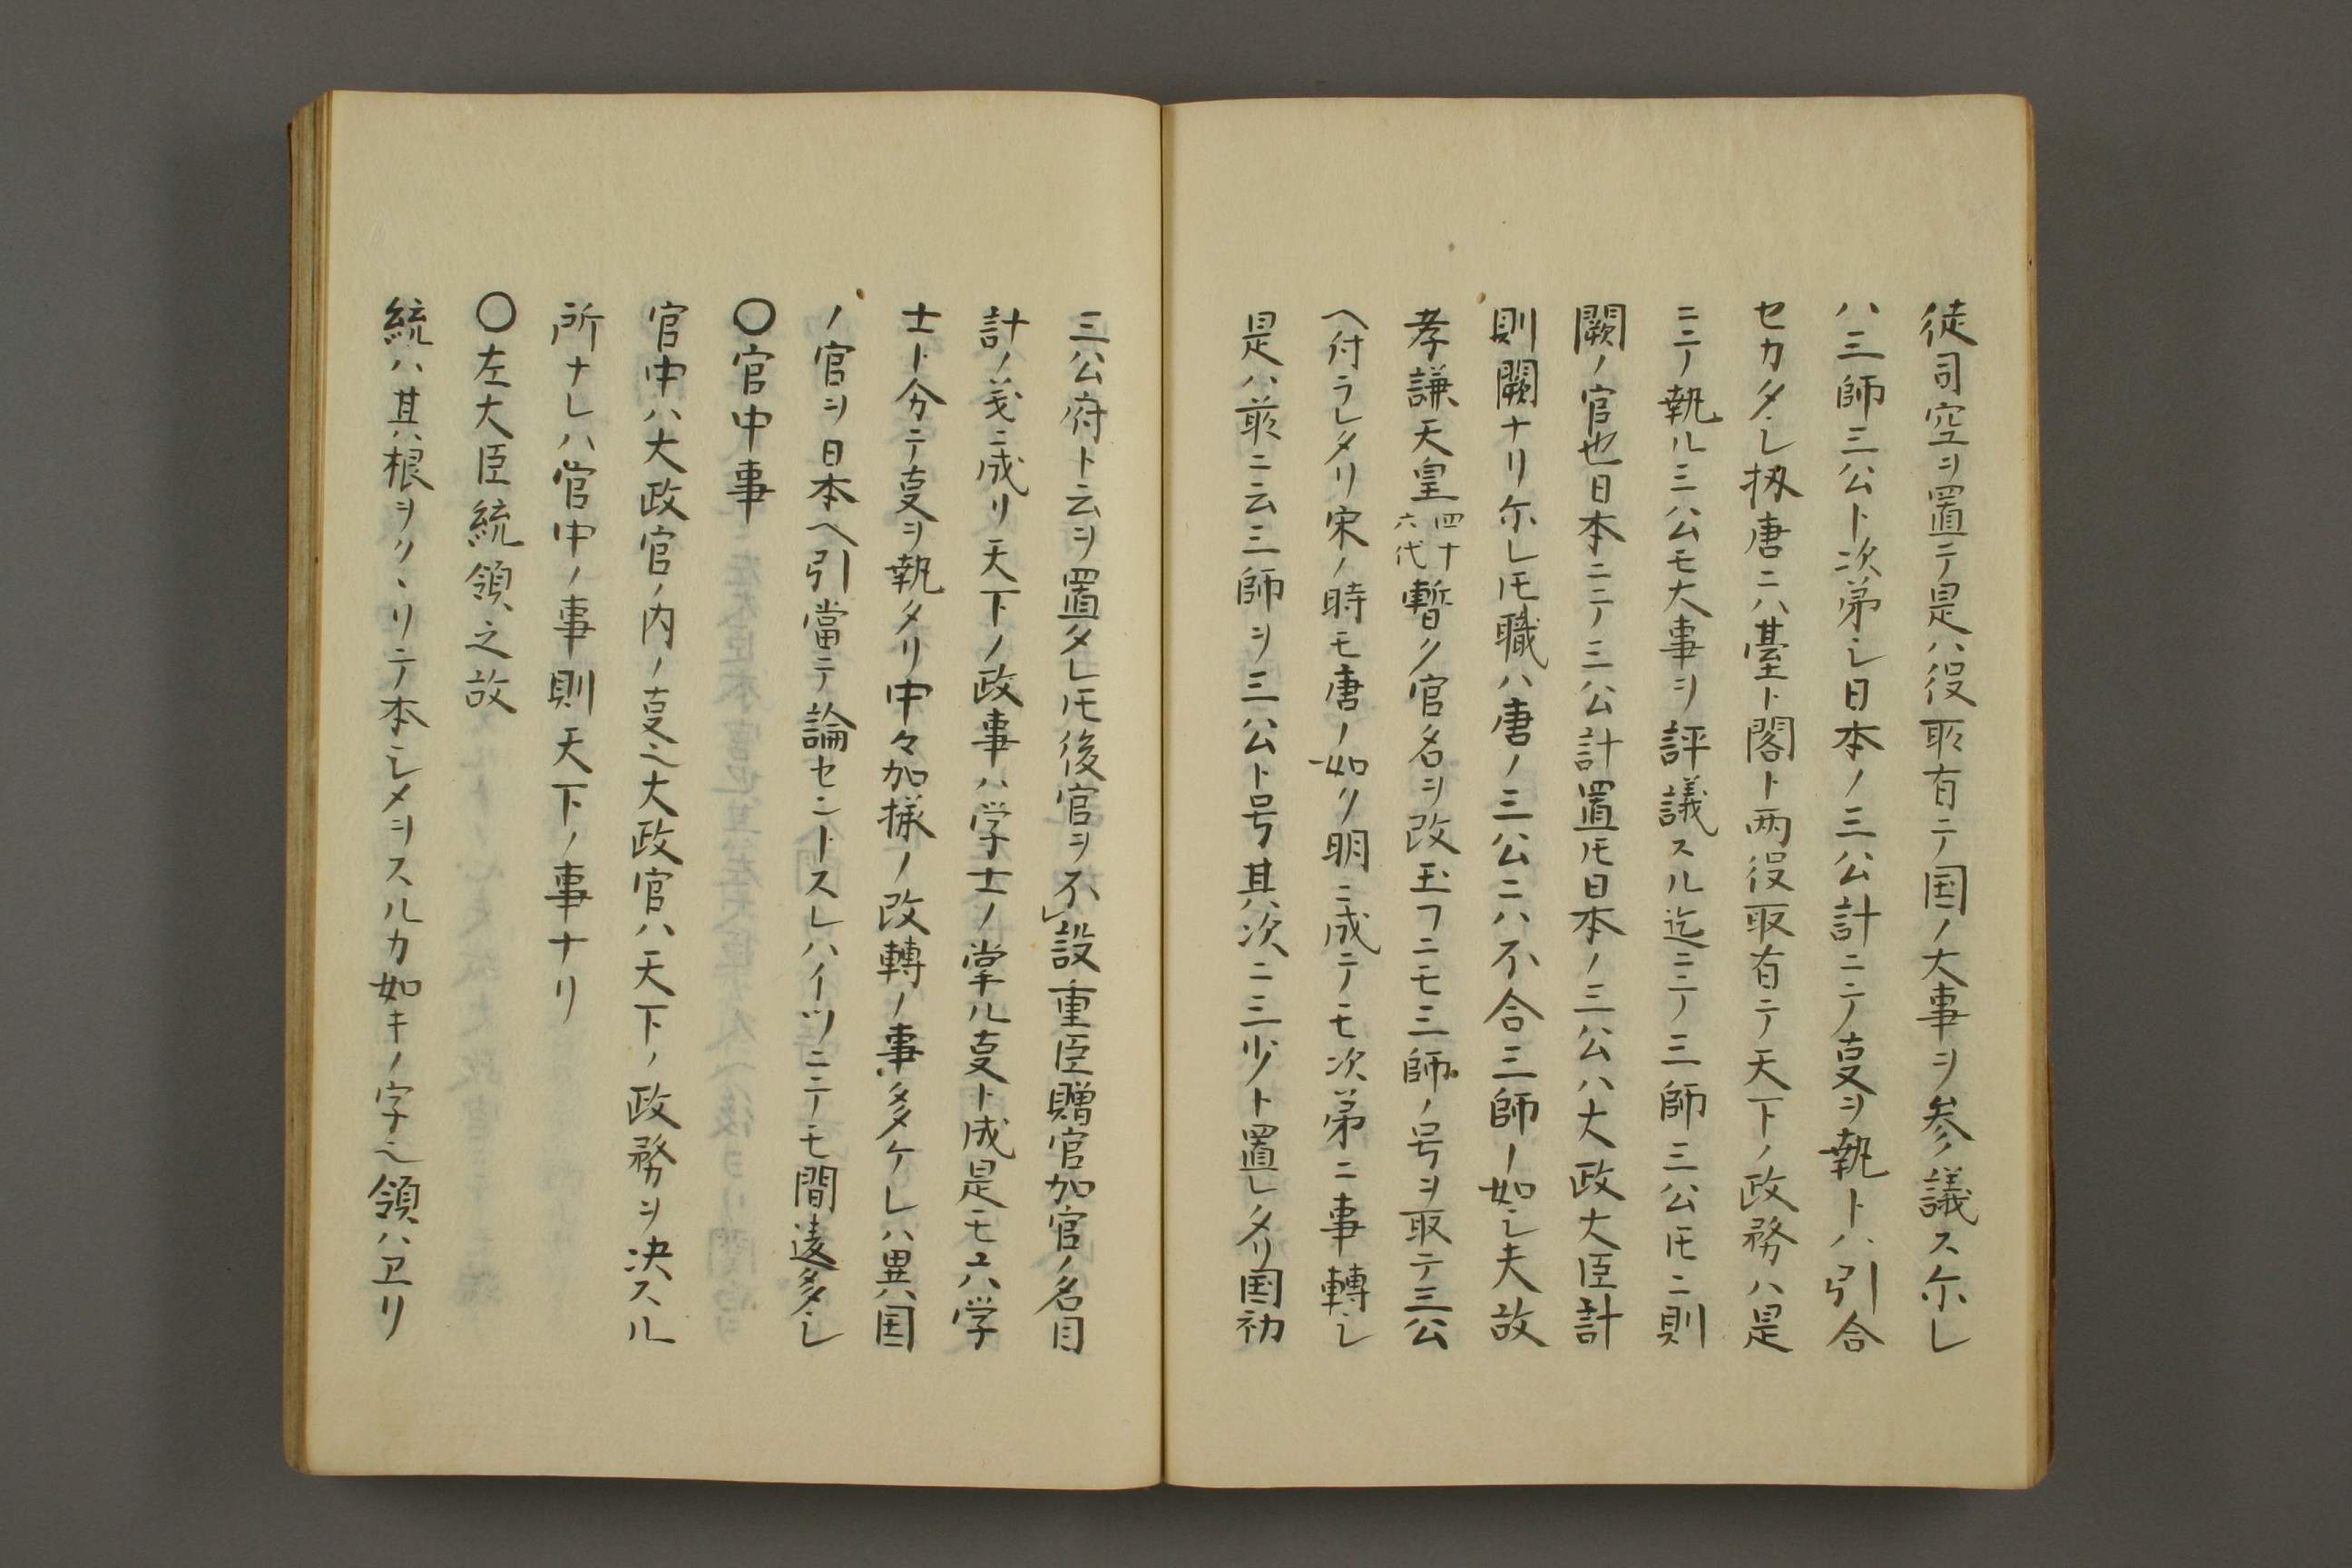 徒司空ヲ置テ是ハ役取有テ国ノ大事ヲ参議ス尓レ
ハ三師三公ト次第シ日本ノ三公計ニテ叓ヲ執トハ引合
セカタシ扨唐ニハ其臺ト閣ト両役取有テ天下ノ政務ハ是
ニテ執ル三公モ大事ヲ評議スル迄ニテ三師三公𪜈ニ則
闕ノ官也日本ニテ三公計置𪜈日本ノ三公ハ大政大臣計
則闕ナリ尓レ𪜈職ハ唐ノ三公ニハ不合三師ノ如シ夫故
孝謙天皇四十六代暫ク官名ヲ改玉フニモ三師ノ号ヲ取テ三公
ヘ付ラレタリ宋ノ時モ唐ノ如ク明ニ成テモ次第ニ事轉シ
是ハ前ニ云三師ヲ三公ト号其次ニ三少ト置レタリ国初
三公府ト云ヲ置タレ𪜈後官ヲ不レ設重臣贈官加官ノ名目
計ノ義ニ成リ天下ノ政事ハ学士ノ掌ル叓ト成是モユハ学
士ト分テ叓ヲ執タリ中々加様ノ改轉ノ事多ケレハ異国
ノ官ヲ日本ヘ引當テ論セントスレハイツニテモ間遠多シ
〇官中事
官中ハ大政官ノ内ノ叓也大政官ハ天下ノ政務ヲ决スル
所ナレハ官中ノ事則天下ノ事ナリ
〇左大臣統領之故
統ハ其根ヲクヽリテ本シメヲスルカ如キノ字也領ハヱリ